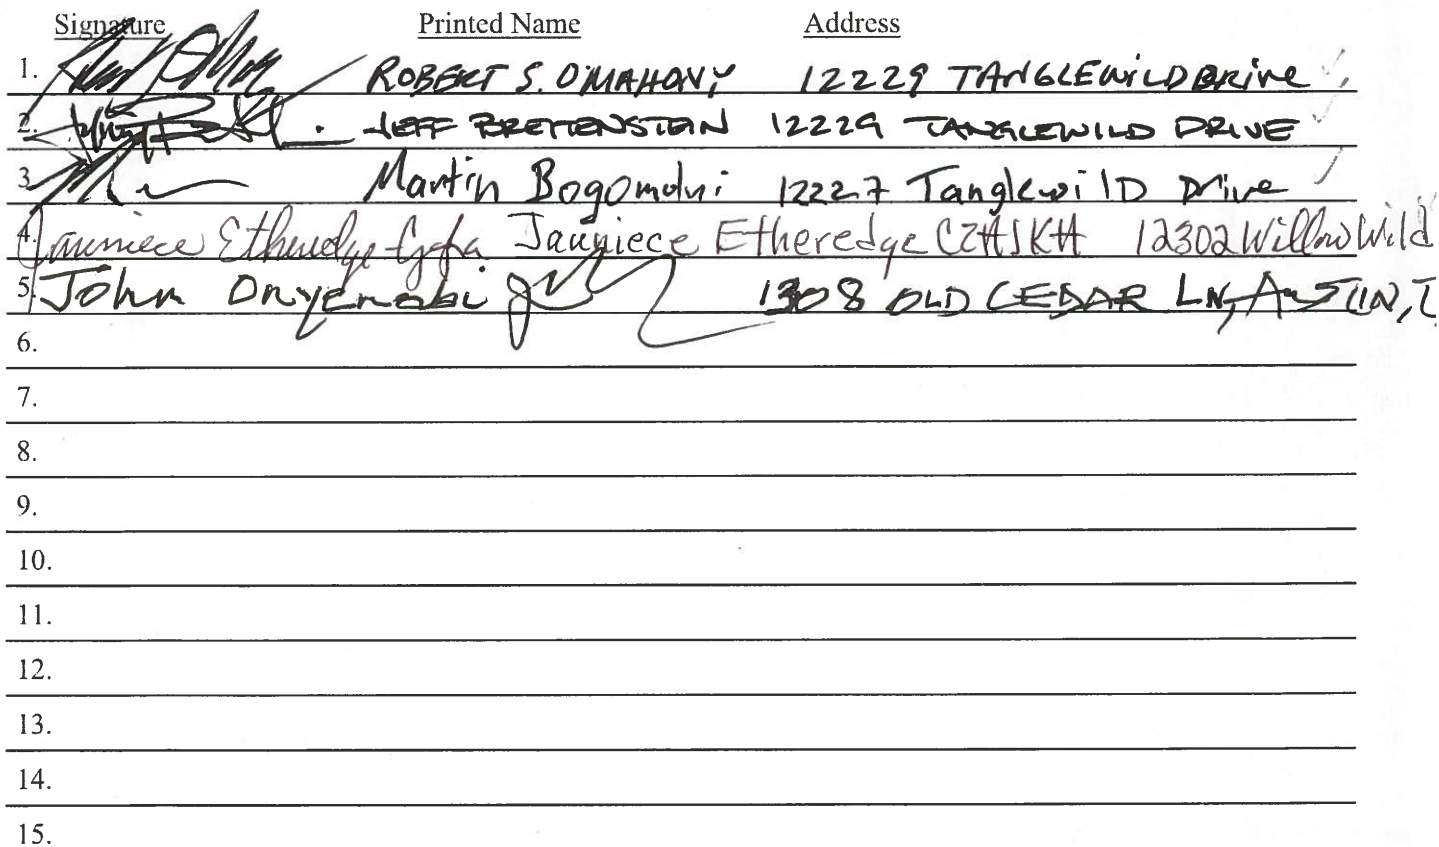 Signature Printed Name Address
1. ROBERT S. O'MAHONY 12229 TANGLEWILD DRIVE
2. JEFF BREITENSTEIN 12229 TANGLEWILD DRIVE
3. Martin Bogomolni 12227 Tanglewild Drive
4. Jauniece Etheredge Jauniece Etheredge CZAJKA 12302 Willow Wild
5. John Onyenobi 1308 OLD CEDAR LN, AUSTIN, T
6.
7.
8.
9.
10.
11.
12.
13.
14.
15.